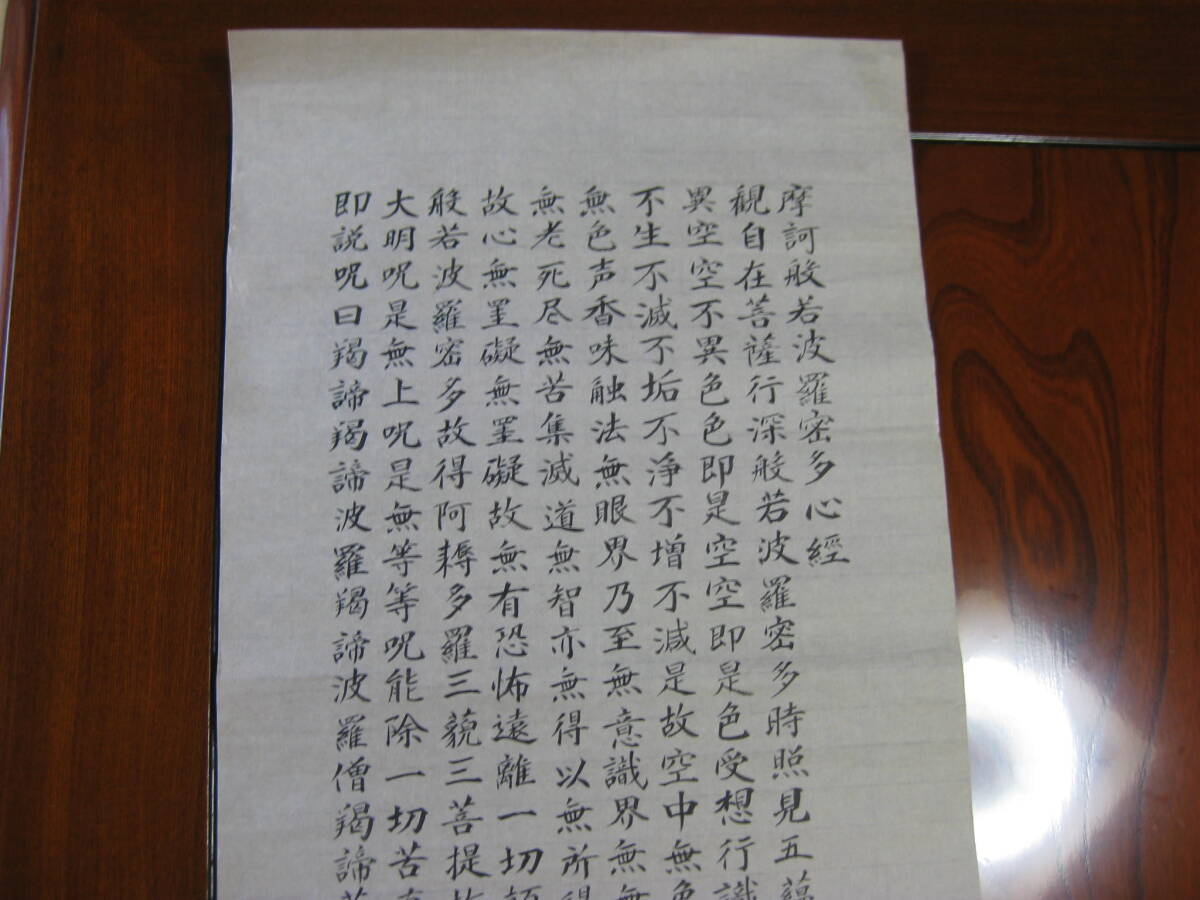 摩訶般若波羅密多心經
観自在菩薩行深般若波羅密多時照見五蘊
異空空不異色色即是空空即是色受想行識
不生不滅不垢不淨不増不減是故空中無色
無色声香味触法無眼界乃至無意識界無無
無老死尽無苦集滅道無智亦無得以無所得
故心無罣礙無罣礙故無有恐怖遠離一切
般若波羅密多故得阿耨多羅三藐三菩提
大明呪是無上呪是無等等呪能除一切苦
即説呪曰羯諦羯諦波羅羯諦波羅僧羯諦